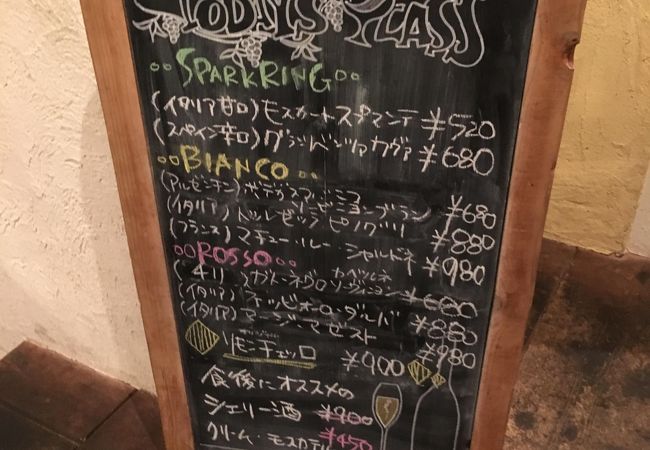 TODAY'S GLASS
SPARKRING
(イタリア甘口)モスカートスプマンテ ¥520
(スペイン辛口)グランバンツァカヴァ ¥680
BIANCO
(アルゼンチン)
ソービニョンブラン ¥680
(イタリア)トッレゼッラ ピノグリ ¥880
(フランス)マチュー・ルー・シャルドネ ¥980
ROSSO
(チリ)ガトーネグロ カベルネ
ソーヴィニョン ¥680
(イタリア)ネッビオーロ・ダルバ ¥880
(イタリア) ¥980
リモンチェッロ ¥900
食後にオススメの
シェリー酒 ¥900
クリーム・モスカテル ¥450